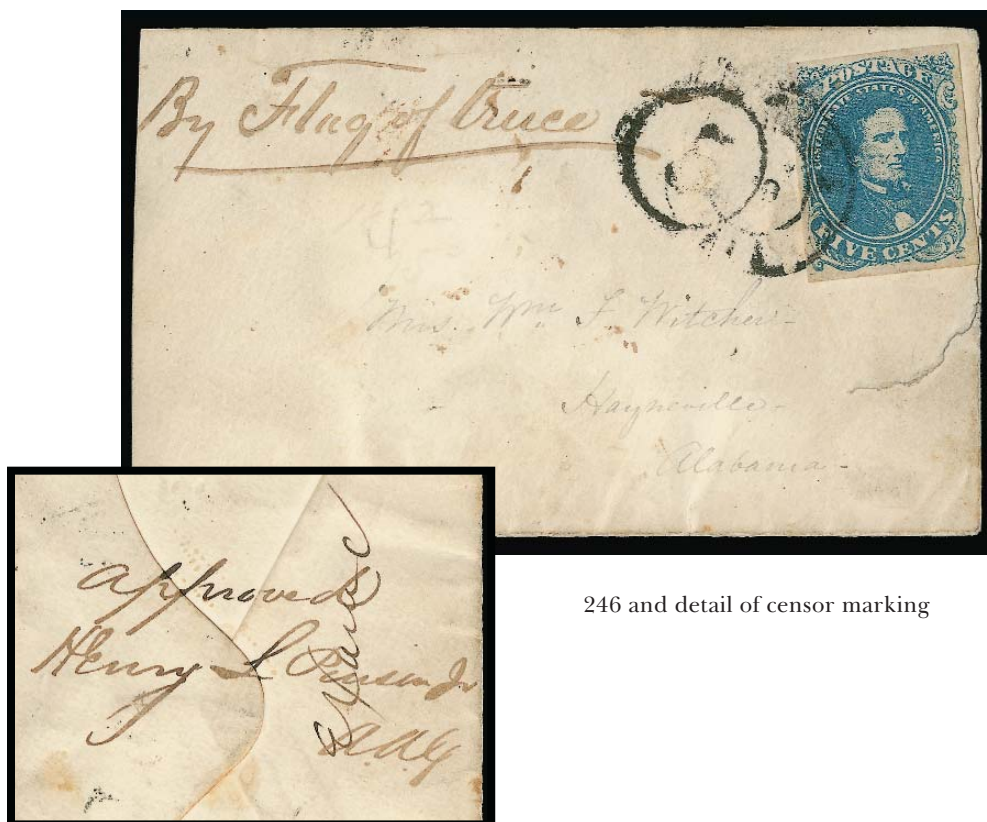 By Flag of Truce
POSTAGE
CONFEDERATE STATES OF AMERICA
FIVE CENTS
Mrs. Wm F. Witcher
Hayneville
Alabama
246 and detail of censor marking
approved
Henry L
Jr
A.A.G